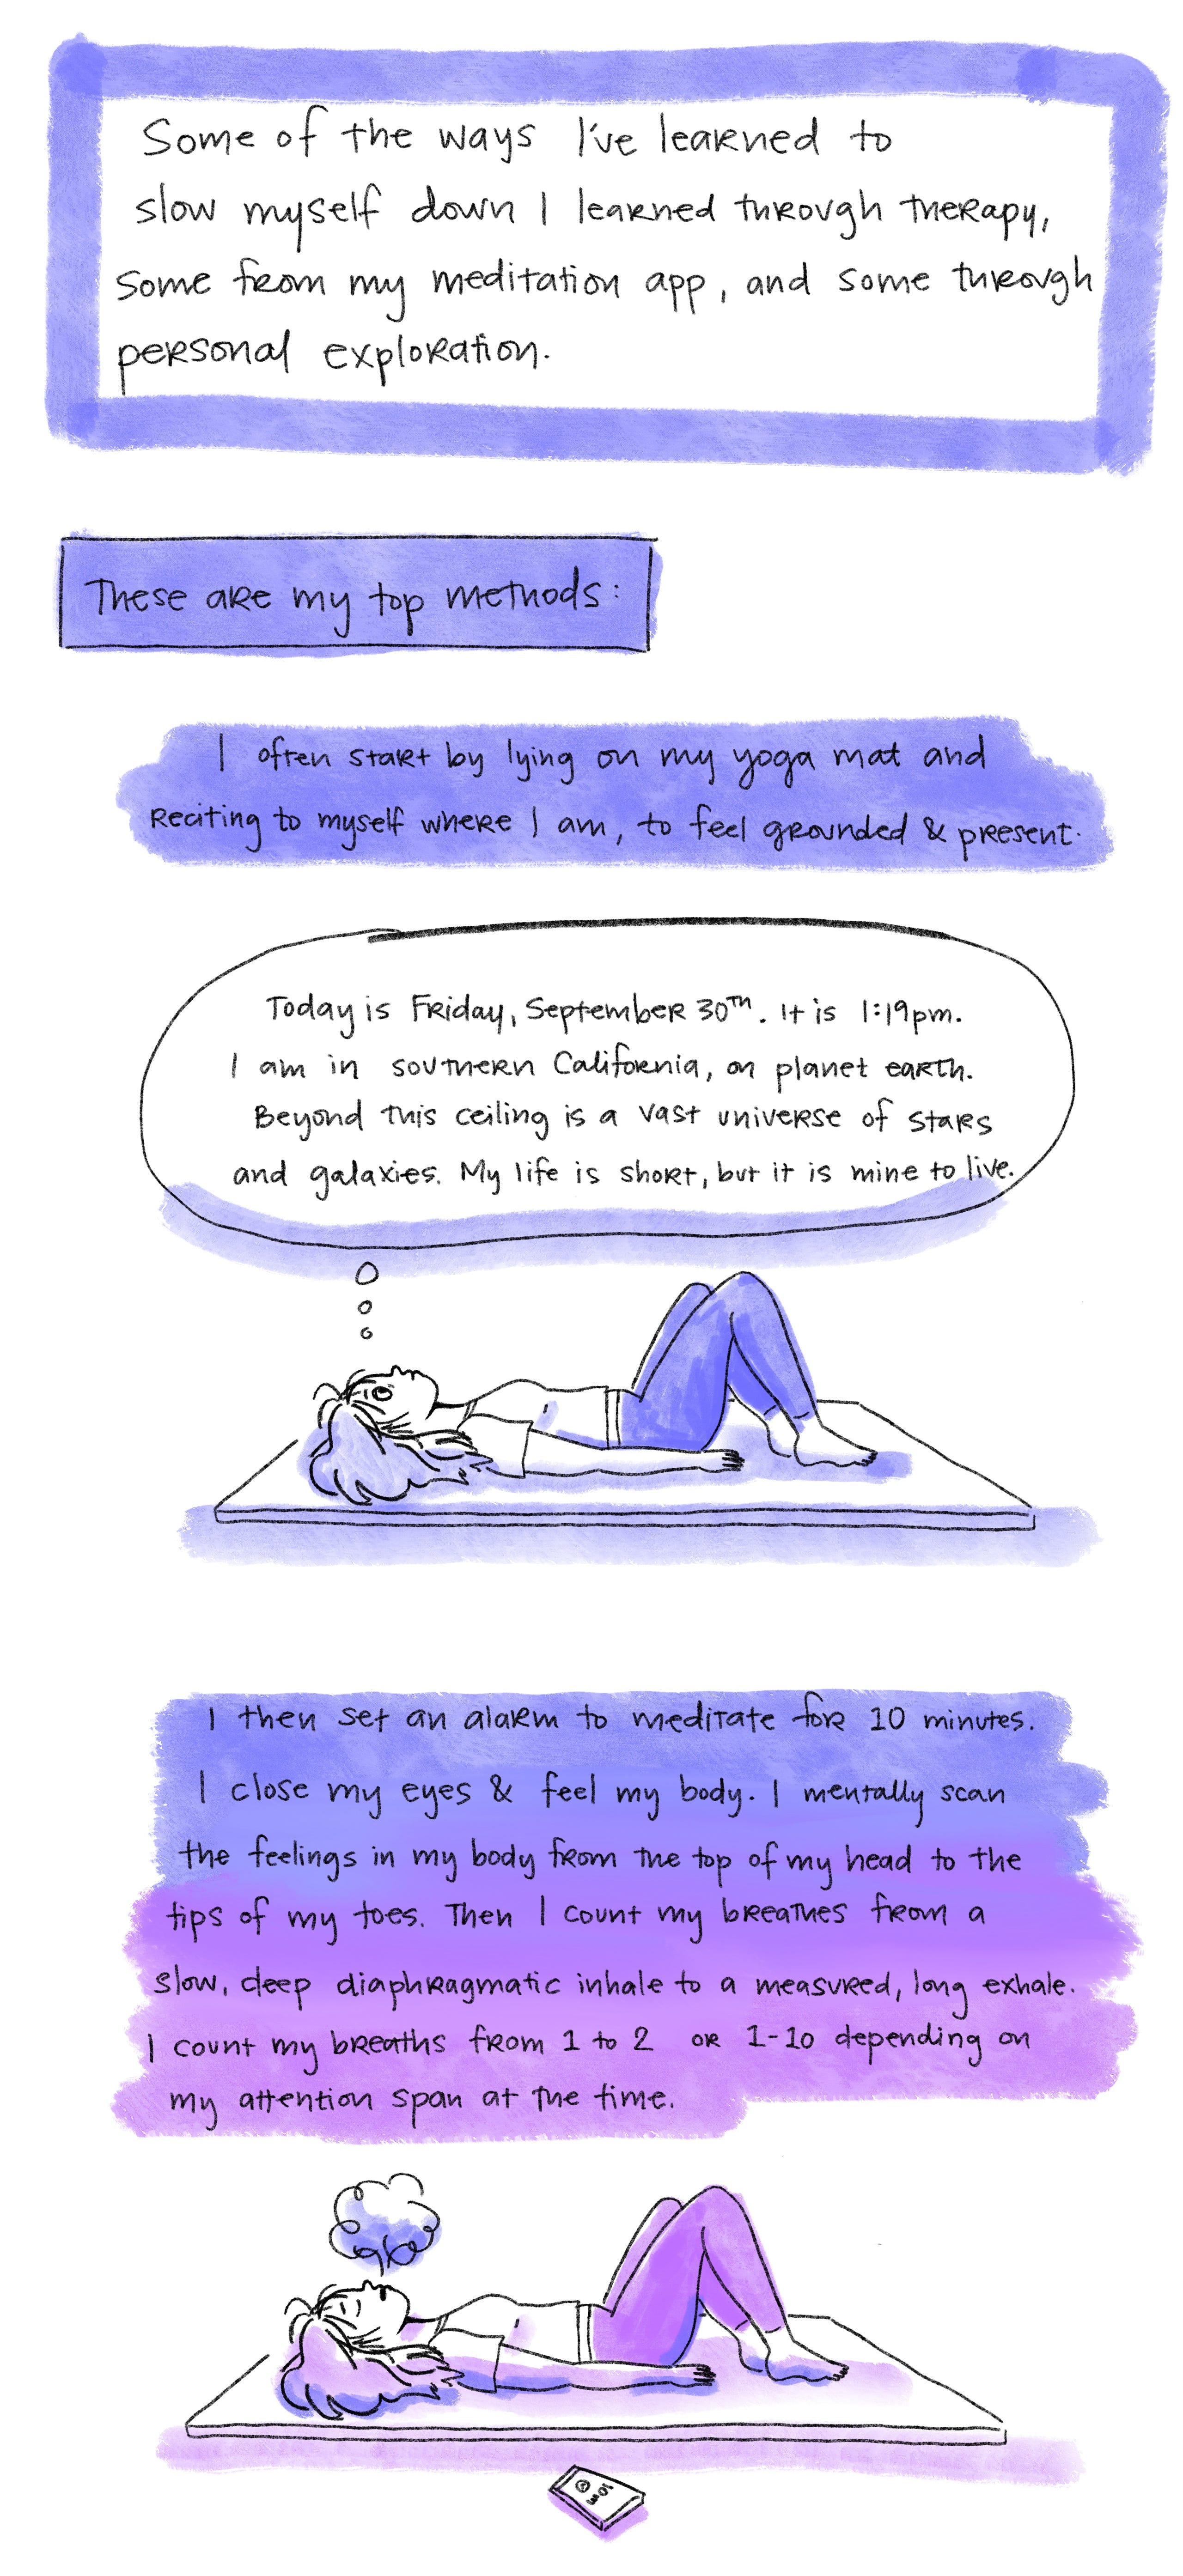 Some of the ways I've learned to
slow myself down I learned through therapy,
some from my meditation app, and some through
personal exploration.
These are my top methods:
I often start by lying on my yoga mat and
reciting to myself where I am, to feel grounded & present.
Today is Friday, September 30th. It is 1:19pm.
I am in southern California, on planet earth.
Beyond this ceiling is a vast universe of stars
and galaxies. My life is short, but it is mine to live.
I then set an alarm to meditate for 10 minutes.
I close my eyes & feel my body. I mentally scan
the feelings in my body from the top of my head to the
tips of my toes. Then I count my breathes from a
slow, deep diaphragmatic inhale to a measured, long exhale.
I count my breaths from 1 to 2 or 1-10 depending on
my attention span at the time.
10m